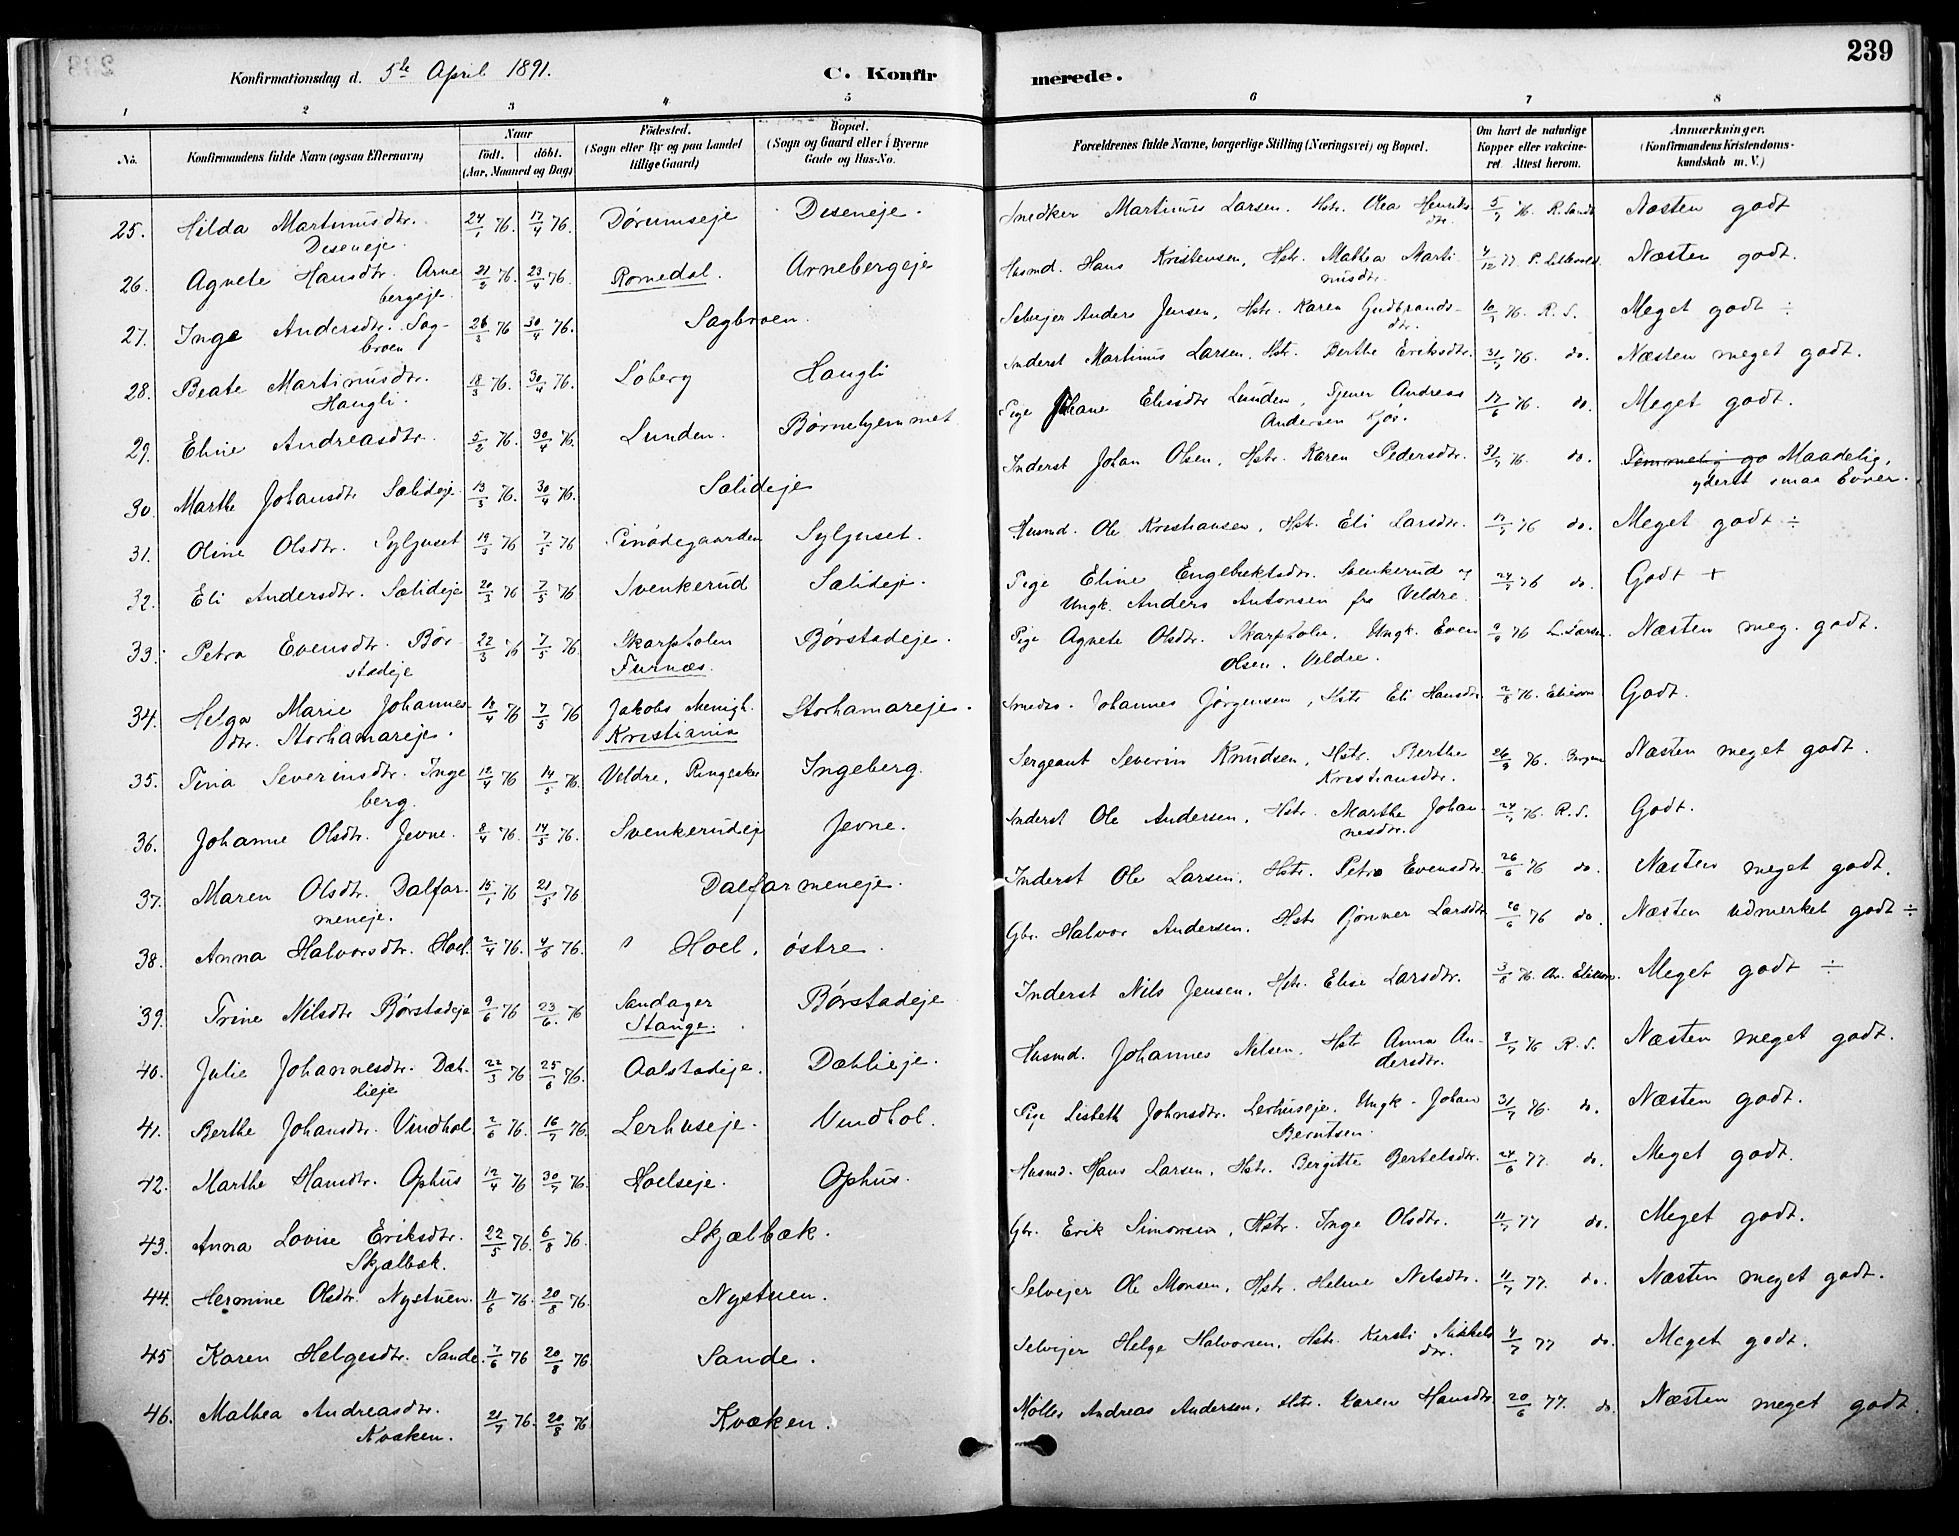 239
Konfirmationsdag d. 5te April 1891.
C. Konfirmerede.
1 2 3 4 5 6 7 8
No. Konfirmandens fulde Navn (ogsaa Efternavn) Naar født. døbt. (Aar, Maaned og Dag) Fødested. (Sogn eller By og paa Landet tillige Gaard) Bopæl. (Sogn og Gaard eller i Byerne Gade og Hus-No. Forældrenes fulde Navne, borgerlige Stilling (Næringsvei) og Bopæl. Om havt de naturlige Kopper eller vakcineret Attest herom. Anmærkninger. (Konfirmandens Kristendomskundskab m. V.)
25. Hilda Martinusdtr. Diseneje. 24/1 76. 17/4 76. Dørumseje Diseneje. Snedker Martinus Larsen. Hstr. Olea Henriksdtr. 5/7 76 R. Sands Næsten godt
26. Agnete Hansdtr. Arnebergeje. 21/2 76. 23/4 76. Romedal. Arnebergeje Husmd. Hans Kristensen, Hstr. Mathea Martinusdtr. 4/12 77 Næsten godt.
27. Inge Andersdtr. Sagbroen 26/3 76 30/4 76. Sagbroen. Selvejer Anders Jensen, Hstr. Karen Gudbrandsdtr. 10/7 76. R. S. Meget godt ÷
28. Beate Martinusdtr. Haugli. 18/3 76. 30/4 76. Løberg Haugli Inderst Martinus Larsen. Hstr. Berthe Eriksdtr. 31/7 76 do. Næsten meget godt.
29. Eline Andreasdtr. 5/2 76. 30/4 76. Lunden. Børnehjemmet Pige Johane Elisdtr Lunden, Tjener Andreas Andersen Kjos. 17/6 76 do. Meget godt.
30. Marthe Johansdtr Sælideje 13/3 76. 30/4 76. Sælideje Inderst Johan Olsen, Hstr. Karen Pedersdtr. 31/7 76. do. Temmelig go Maadelig, yderst smaa Evner.
31. Oline Olsdtr. Syljuset 19/3 76 7/5 76 Syljuset. Husmd. Ole Kristiansen, Hstr. Eli Larsdtr. 17/7 76 do. Meget godt ÷
32. Eli Andersdtr. Sælideje 20/3 76 7/5 76 Svenkerud Sælideje. Pige Eline Engebrektsdtr. Svenkerud og Ungk. Anders Antonsen fra Veldre. 24/7 76 do. Godt +
33. Petra Evensdtr. Børstadeje 22/3 76 7/5 76 Skarpholen Furnæs. Børstadeje. Pige Agnete Olsdtr. Skarpholen. Ungk. Even Olsen. Veldre. 9/9 76 L. Larsen. Næsten meg. godt.
34. Helga Marie Johannesdtr. Storhamareje. 14/4 76 7/5 76 Jakobs Menigh. Kristiania Storhamareje. Smedsv. Johannes Jørgensen, Hstr Eli Hansdtr 2/8 76. Godt.
35. Tina Severinsdtr. Ingeberg. 12/4 76 14/5 76. Veldre, Ringsaker Ingeberg. Sergeant Severin Knudsen, Hstr. Berthe Kristiansdtr. 26/9 76. Næsten meget godt.
36. Johanne Olsdtr. Jevne. 8/4 76. 14/5 76. Svenkerudeje Jevne. Inderst Ole Andersen, Hstr. Marthe Johannesdtr. 24/7 76. R. S. Godt.
37. Maren Olsdtr. Dalfarmeneje. 15/1 76 21/5 76 Dalfarmeneje. Inderst Ole Larsen, Hstr. Petra Evensdtr. 26/6 76 do. Næsten meget godt.
38. Anna Halvorsdtr. Hoel. 2/4 76. 4/6 76. Hoel, østre. Gbr. Halvor Andersen. Hstr Gønner Larsdtr 26/6 76 do. Næsten udmerket godt ÷
39. Trine Nilsdtr Børstadeje 9/6 76 23/6. 76 Sandager Stange. Børstadeje Inderst Nils Jensen, Hstr. Elise Larsdtr. 3/8 76. Meget godt ÷
40. Julie Johannesdtr. Dæhlieje 22/3 76 25/6 76. Aalstadeje. Dæhlieje. Husmd. Johannes Nilsen, Hstr Anna Andersdtr. 8/7 76 R. S. Næsten meget godt.
41. Berthe Johansdtr. Vindhol 2/6 76. 16/7 76. Lerhuseje. Vindhol. Pige Lisbeth Johnsdtr. Lerhuseje. Ungk. Johan Berntsen. 31/7 76. do. Næsten godt.
42. Marthe Hansdtr. Ophus 12/4 76 30/7 76. Hoelseje. Ophus. Husmd. Hans Larsen, Hstr. Bergitte Bertelsdtr. 24/6 77. do. Meget godt.
43. Anna Lovise Eriksdtr. Skjælbæk. 22/5 76. 6/8 76. Skjælbæk. Gbr. Erik Simonsen, Hstr. Inge Olsdtr. 11/7 77 do. Meget godt.
44. Hermine Olsdtr. Nystuen. 11/6 76. 20/8 76. Nystuen. Selvejer Ole Monsen, Hstr. Helene Nilsdtr. 11/7 77. do. Næsten meget godt.
45 Karen Helgesdtr. Sande. 7/6 76 20/8 76 Sande. Selvejer Helge Halvorsen, Hstr. Kersti Mikkelsdtr. 11/7 77 do. Meget godt.
46. Mathea Andreasdtr. Kvæken. 21/7 76. 20/8 76 Kvæken. Møller Andreas Andersen, Hstr. Karen Hansdtr 20/6 77. do. Næsten meget godt.